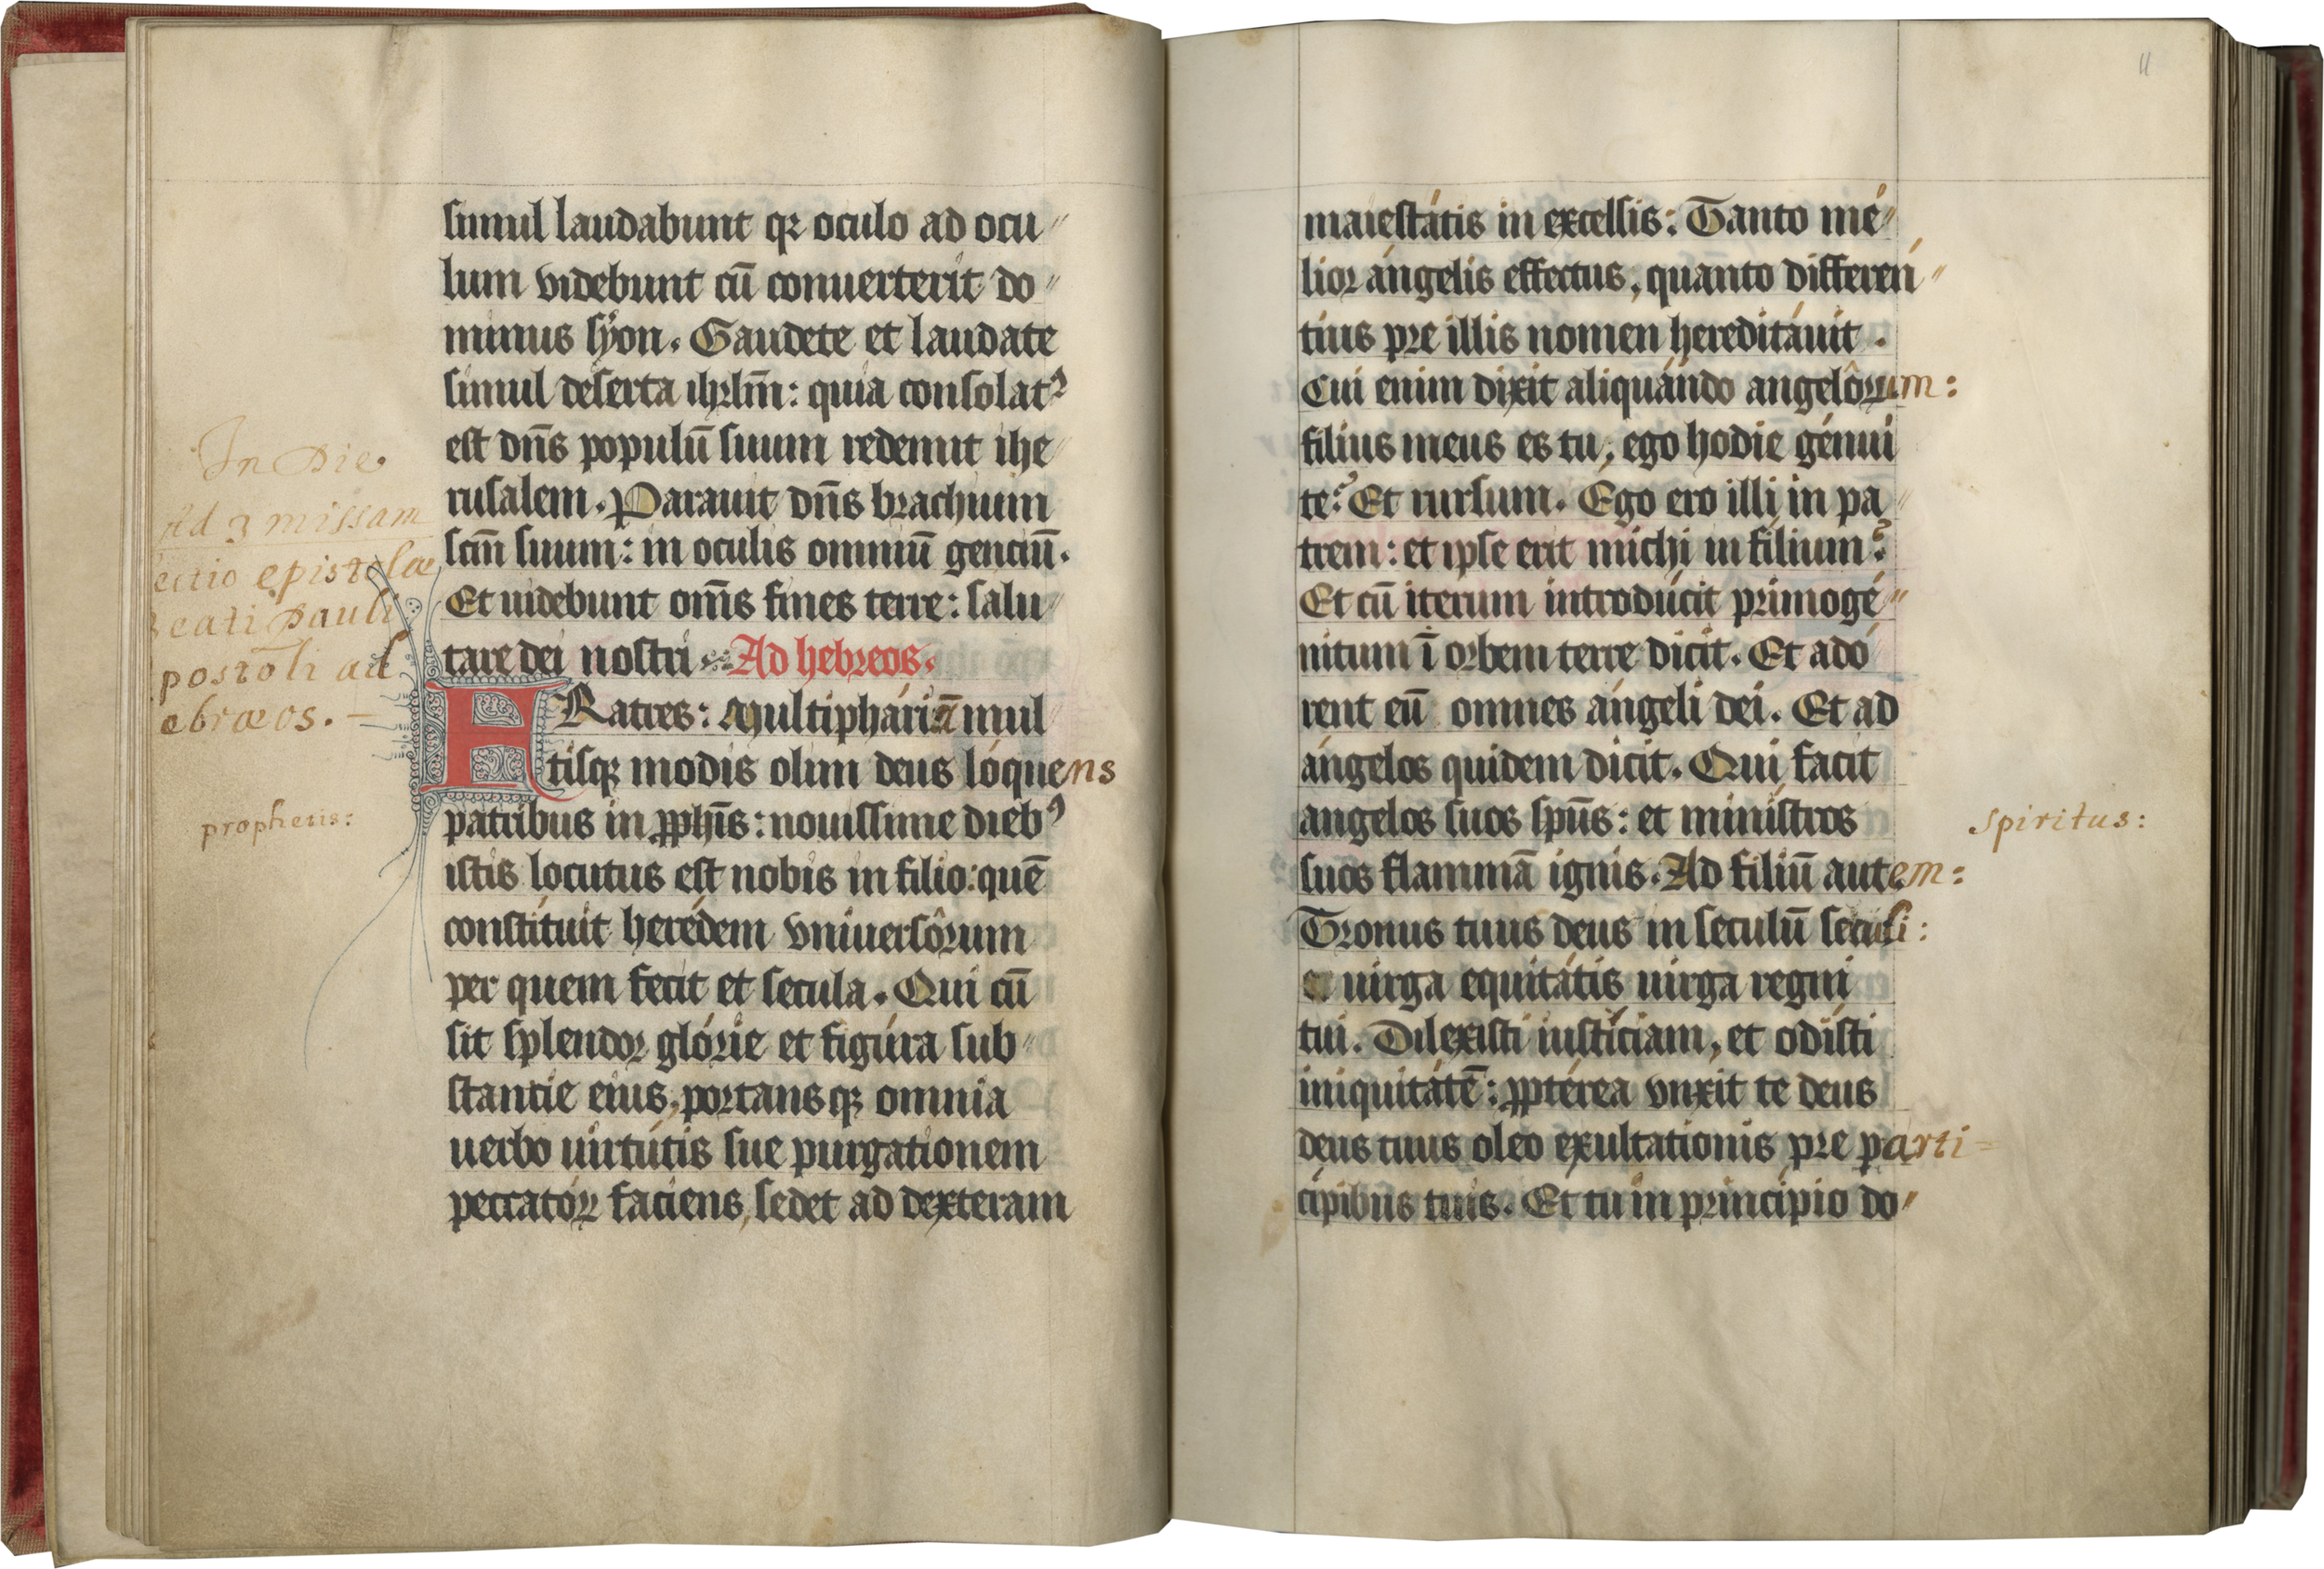 simul laudabunt qꝛ oculo ad ocu〃
lum videbunt cū conuerterit do〃
minus syon. Gaudete et laudate
simul deserta ihrlm̄: quia consolatᷣ
est dn̄s populū suum redemit ihe
rusalem. Parauit dn̄s brachium
scm̄ suum: in oculis omniū genciū.
Et uidebunt om̄s fines terre: salu
tare dei nostri Ad hebreos.
FRatres: Multiphariā mul
tisqꝫ modis olim deus lóquens
patribus in ꝓph̄is: nouissime diebꝰ
istis locutus est nobis in filio: quē
constítuit herédem vniuersôrum
per quem fecit et secula. Qui cū
sit splendor glórie et figúra sub〃
stantie eius, portansqꝫ omnia
uerbo uirtútis sue purgationem
peccatóꝝ faciens, sedet ad dexteram
In Die
Ad 3 missam
ectio epistolæ
Beati Pauli
postoli ad
ebræos.
prophetis:
11
maiestátis in excelsis: Tanto mé〃
lior ángelis effectus, quanto differén〃
tius pre illis nomen hereditáuit.
Cui enim dixit aliquándo angelôrum:
filius meus es tu, ego hodie génui
te? Et rursum. Ego ero illi in pa〃
trem: et ipse erit michi in filium?
Et cū iterum introdúcit primogé〃
nitum ī orbem terre dicit. Et adó
rent eū omnes ángeli dei. Et ad
ángelos quidem dicit. Qui facit
angelos suos sp̄us: et minístros
suos flammā ignis. Ad filiū autem:
Tronus tuus deus in seculū seculi:
et uirga equitátis uirga regni
tui. Dilexisti iustíciam, et odísti
iniquitátē: ꝓptérea vnxit te deus
deus tuus oleo exultationis pre parti=
cípibus tuis. Et tu in princípio do〃
spiritus: